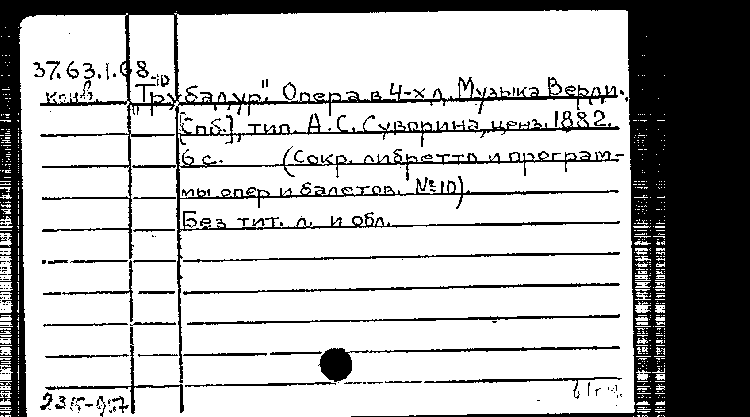 37.63.1.68-10
конв. "Трубадур". Опера в 4-х д. Музыка Верди.
[Спб.], тип. А.С. Суворина, ценз. 1882.
6 с. (Сокр. либретто и програм-
мы опер и балетов. №10).
Без тит. л. и обл.